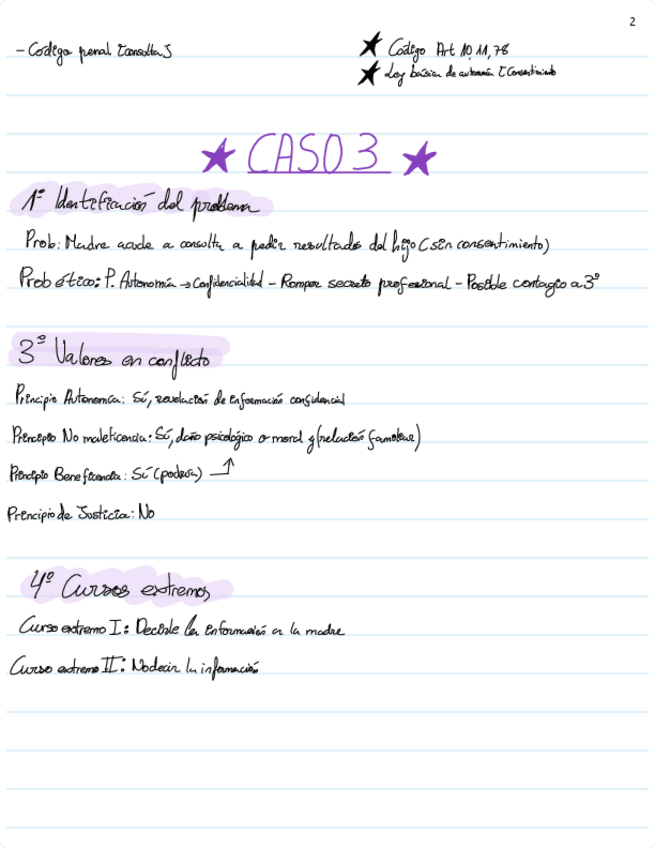 2
- Codigo penal Consulta J
★ Código Art 10, 11, 78
★ Ley básica de autonomía Consentimiento
★ CASO 3 ★
1º Identificación del problema
Prob: Madre acude a consulta a pedir resultados del hijo (sin consentimiento)
Prob ético: P. Autonomía → Confidencialidad - Romper secreto profesional - Posible contagio a 3º
3º Valores en conflicto
Principio Autonomía: Sí, revelación de información confidencial
Principio No maleficencia: Sí, daño psicológico o moral y (relación familiar)
Principio Beneficencia: Sí (podría)
Principio de Justicia: No
4º Cursos extremos
Curso extremo I: Decirle la información a la madre
Curso extremo II: No decir la información